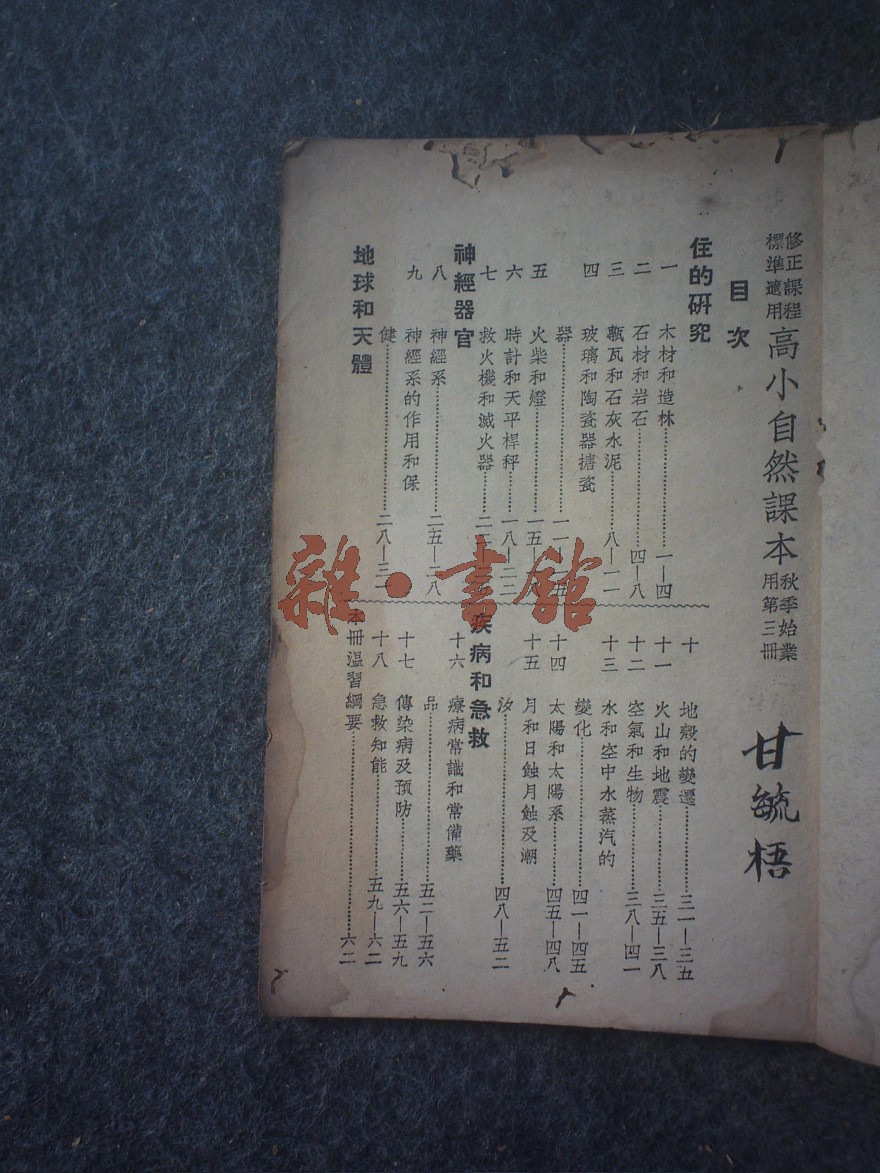 修正課程
標準適用
高小自然課本
秋季始業
用第三冊
甘毓梧
目次
住的研究
一 木材和造林 一—四
二 石材和岩石 四—八
三 甎瓦和石灰水泥 八—一一
四 玻璃和陶瓷器搪瓷
器 一一—一五
五 火柴和燈 一五—一八
六 時計和天平桿秤 一八—二二
七 救火機和滅火器
神經器官
八 神經系 二五—二八
九 神經系的作用和保
健 二八—三一
地球和天體
十 地殼的變遷 三一—三五
十一 火山和地震 三五—三八
十二 空氣和生物 三八—四一
十三 水和空中水蒸汽的
變化 四一—四五
十四 太陽和太陽系 四五—四八
十五 月和日蝕月蝕及潮
汐 四八—五二
疾病和急救
十六 療病常識和常備藥
品 五二—五六
十七 傳染病及預防 五六—五九
十八 急救知能 五九—六二
本冊溫習綱要 六二
雜·書館